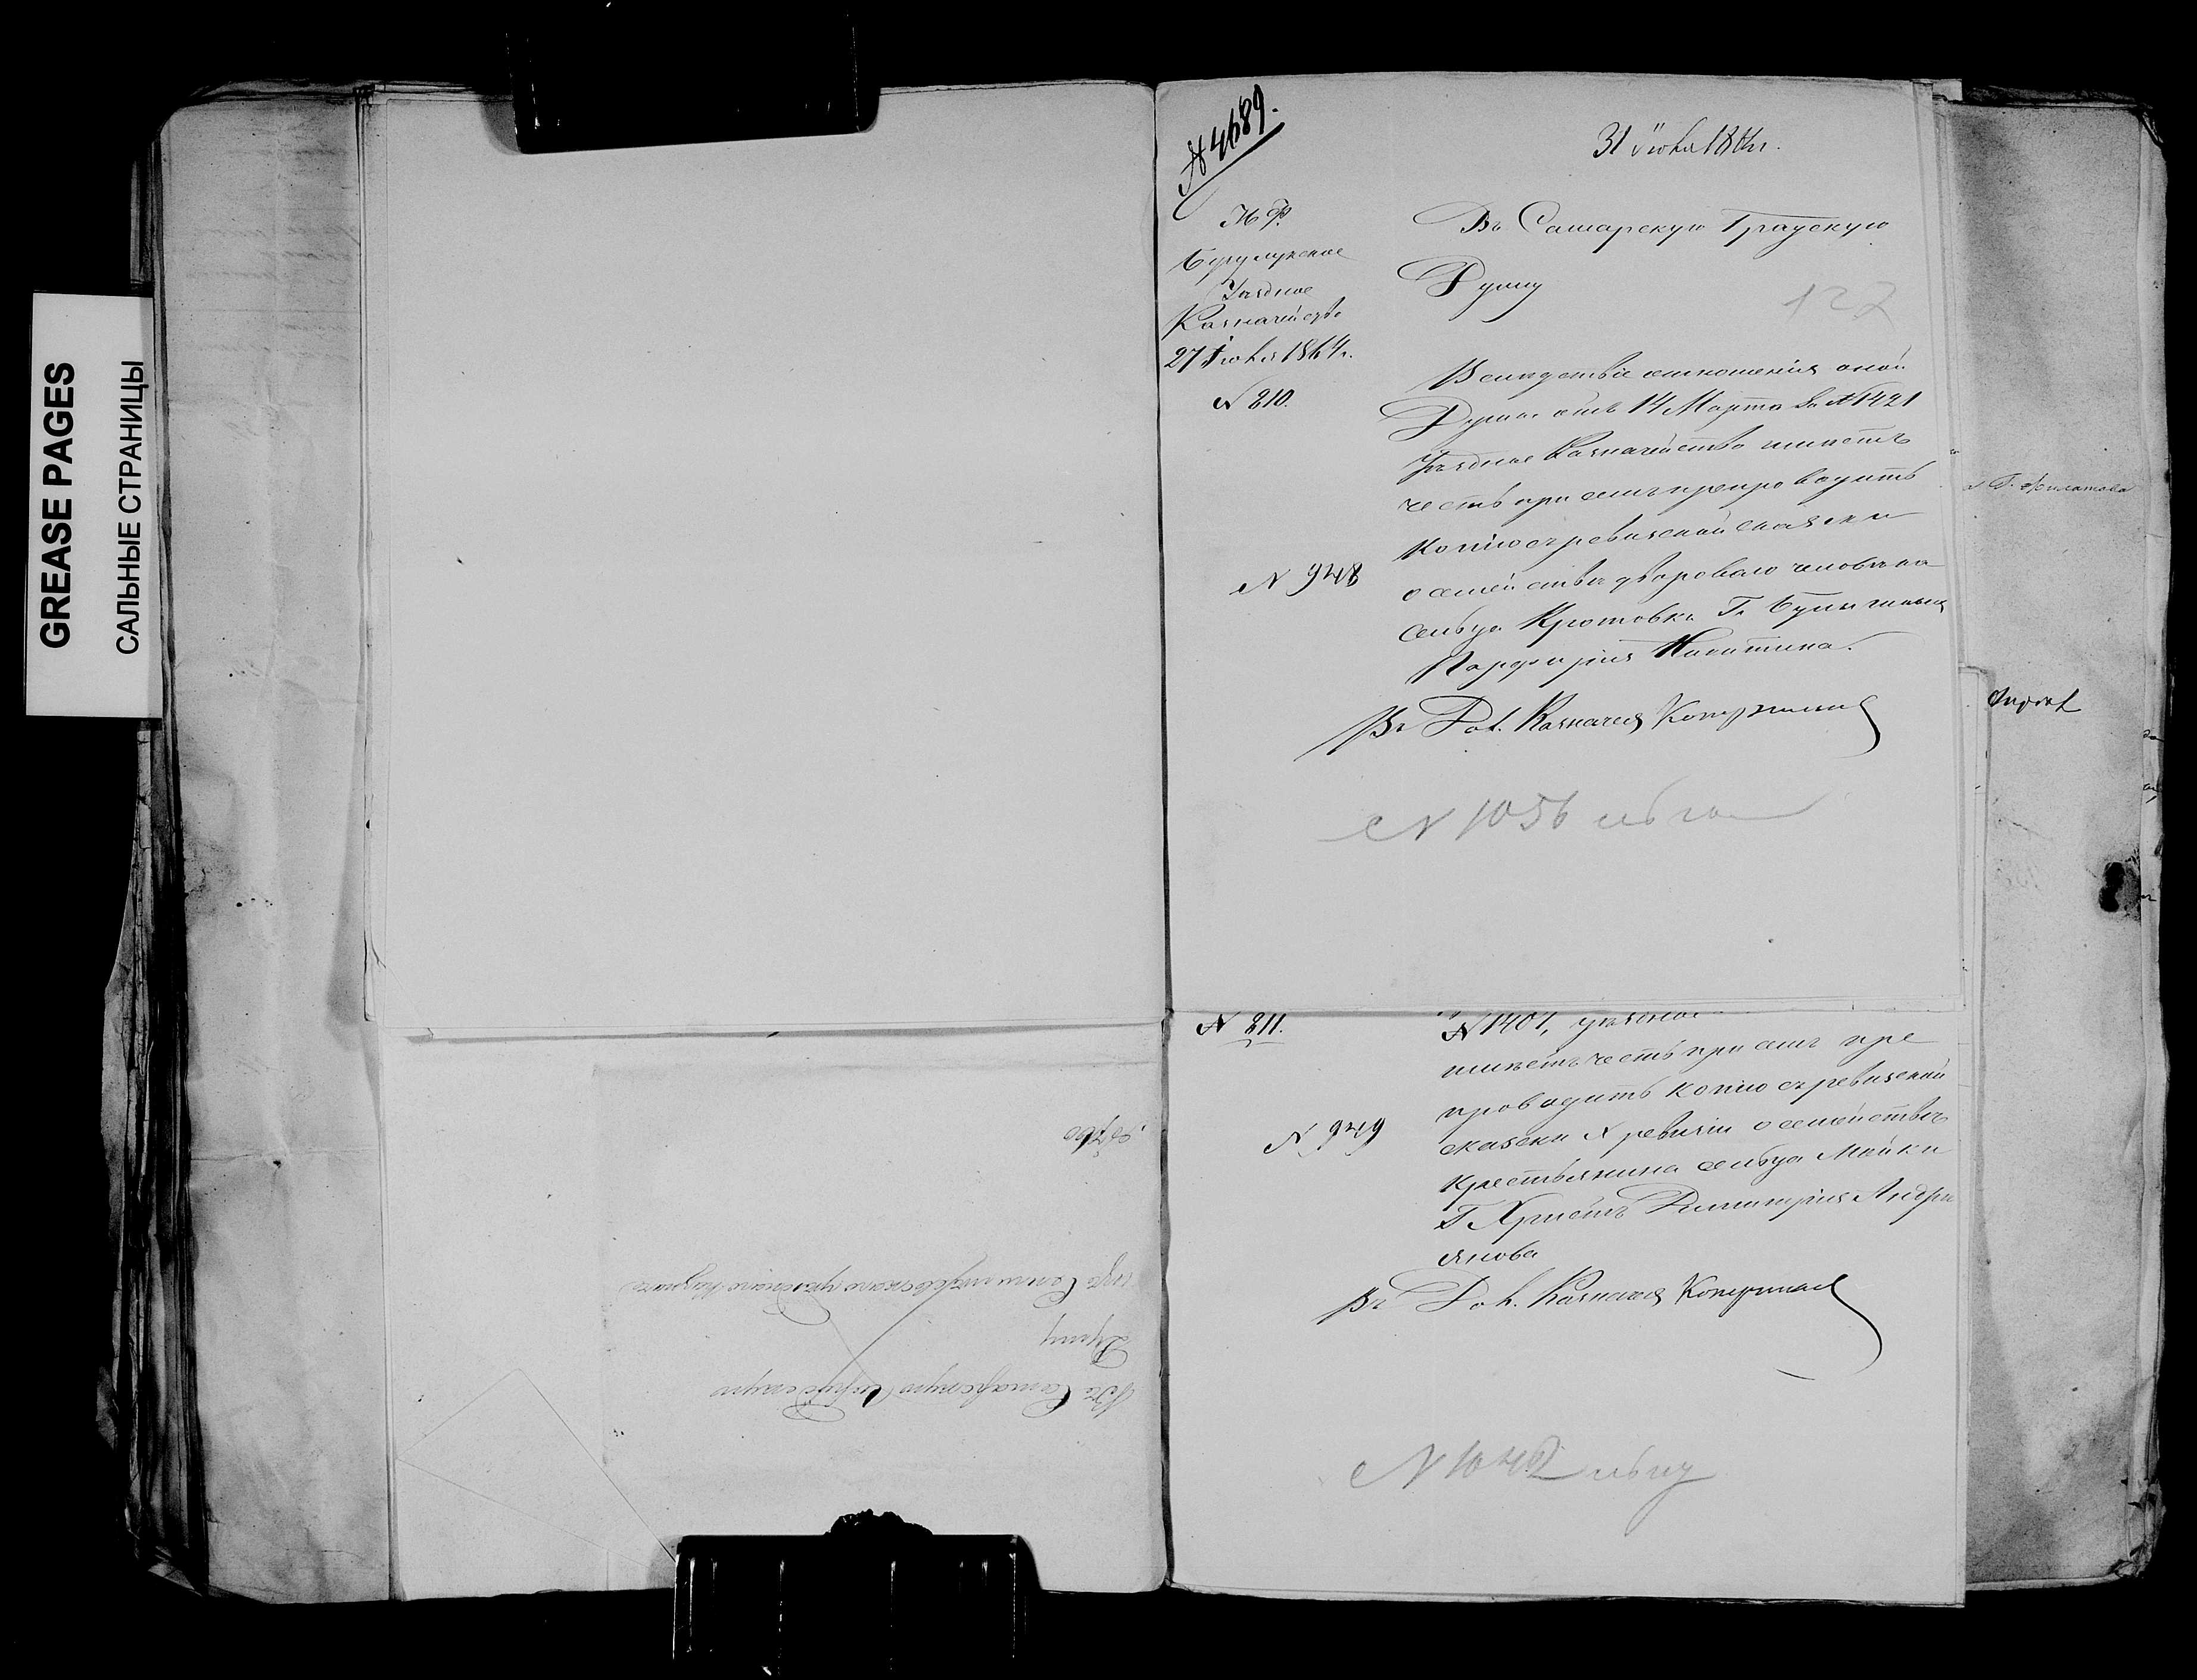 GREASE PAGES
САЛЬНЫЕ СТРАНИЦЫ
№ 4689.
31 Іюля 1864 г.
М. Ф.
Бугулукское
Уѣздное
Казначейство
27 Іюля 1864 г.
№ 210.
Въ Самарскую Градскую
Думу
127
Вслѣдствіе отношенія оной
Думы отъ 14 Марта за № 1421
Уѣздное Казначейство имѣетъ
честь при семъ препроводить
копію съ ревизской сказки
№ 948
о семействѣ двороваго человѣка
сельца Кротовки Г.
Порфирія Никитина.
За Дол. Казначея
№ 1056
№ 211.
№ 1401, уѣздное
имѣетъ честь при семъ пре
проводить копію съ ревизской
№ 949
сказки X ревизіи о семействѣ
крестьянина сельца Мойки
Г. Димитрія Андри
янова
За Дол. Казначея
№ 1042
Въ Самарскую Градскую
Думу
изъ уѣзднаго Казнач
Г. Филатова